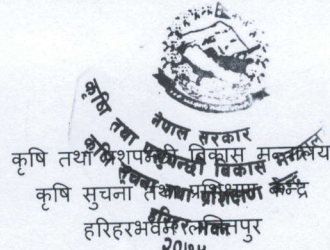 नेपाल सरकार
कृषि तथा पशुपन्छी विकास मन्त्रालय
कृषि सुचना तथा प्रशिक्षण केन्द्र
हरिहरभवन ललितपुर
२०७५